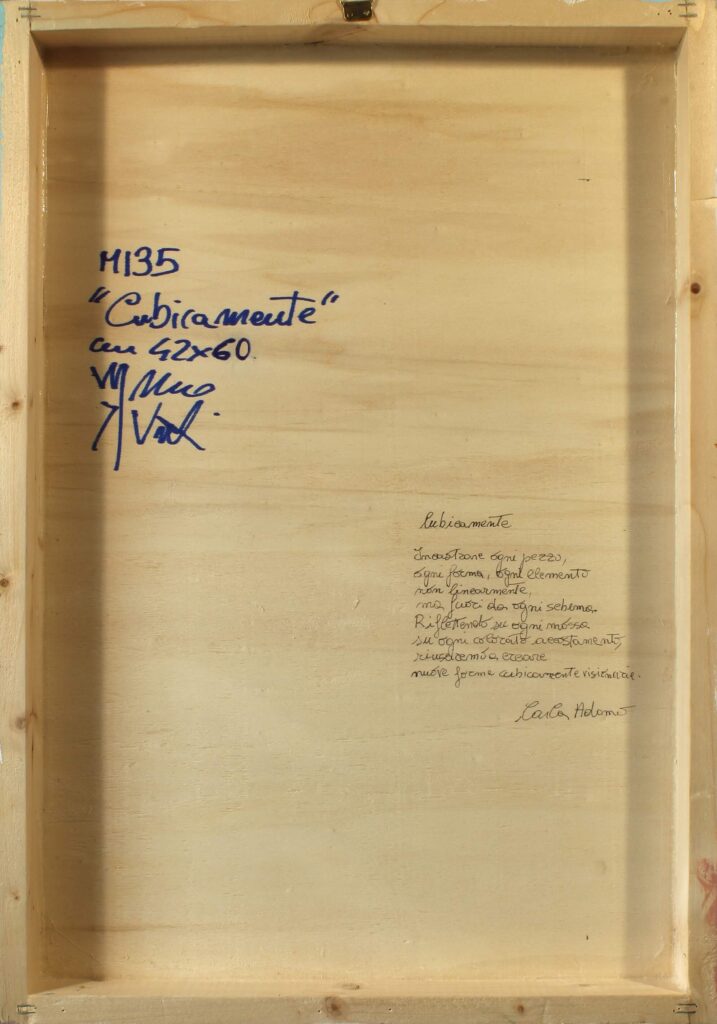 M135
"Cubicamente"
cm 42x60.
Cubicamente
Incastrare ogni pezzo,
ogni forma, ogni elemento
non linearmente,
ma fuori da ogni schema.
Riflettendo su ogni mossa
su ogni colorato accostamento,
riusciremo a creare
nuove forme cubicamente visionarie.
Carla Adamo